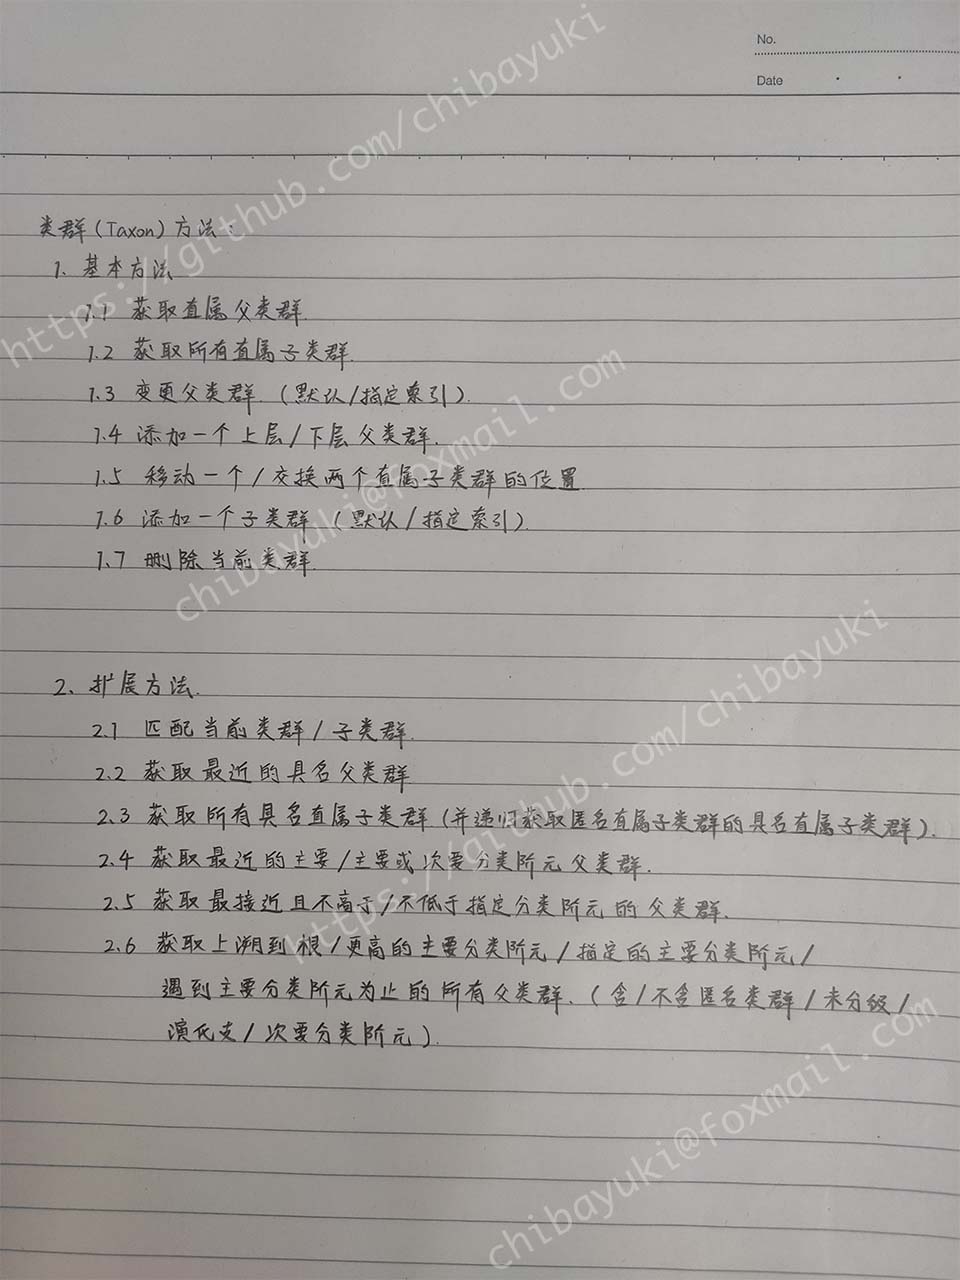 No.
Date
类群(Taxon)方法:
1. 基本方法
1.1 获取直属父类群.
1.2 获取所有直属子类群.
1.3 变更父类群.(默认/指定索引).
1.4 添加一个上层/下层父类群.
1.5 移动一个/交换两个直属子类群的位置
1.6 添加一个子类群(默认/指定索引).
1.7 删除当前类群.
2. 扩展方法.
2.1 匹配当前类群/子类群.
2.2 获取最近的具名父类群
2.3 获取所有具名直属子类群(并递归获取匿名直属子类群的具名直属子类群).
2.4 获取最近的主要/主要或次要分类阶元父类群.
2.5 获取最接近且不高于/不低于指定分类阶元的父类群.
2.6 获取上溯到根/更高的主要分类阶元/指定的主要分类阶元/
遇到主要分类阶元为止的所有父类群.(含/不含匿名类群/未分级/
演化支/次要分类阶元).
https://github.com/chibayuki
chibayuki@foxmail.com
https://github.com/chibayuki
chibayuki@foxmail.com